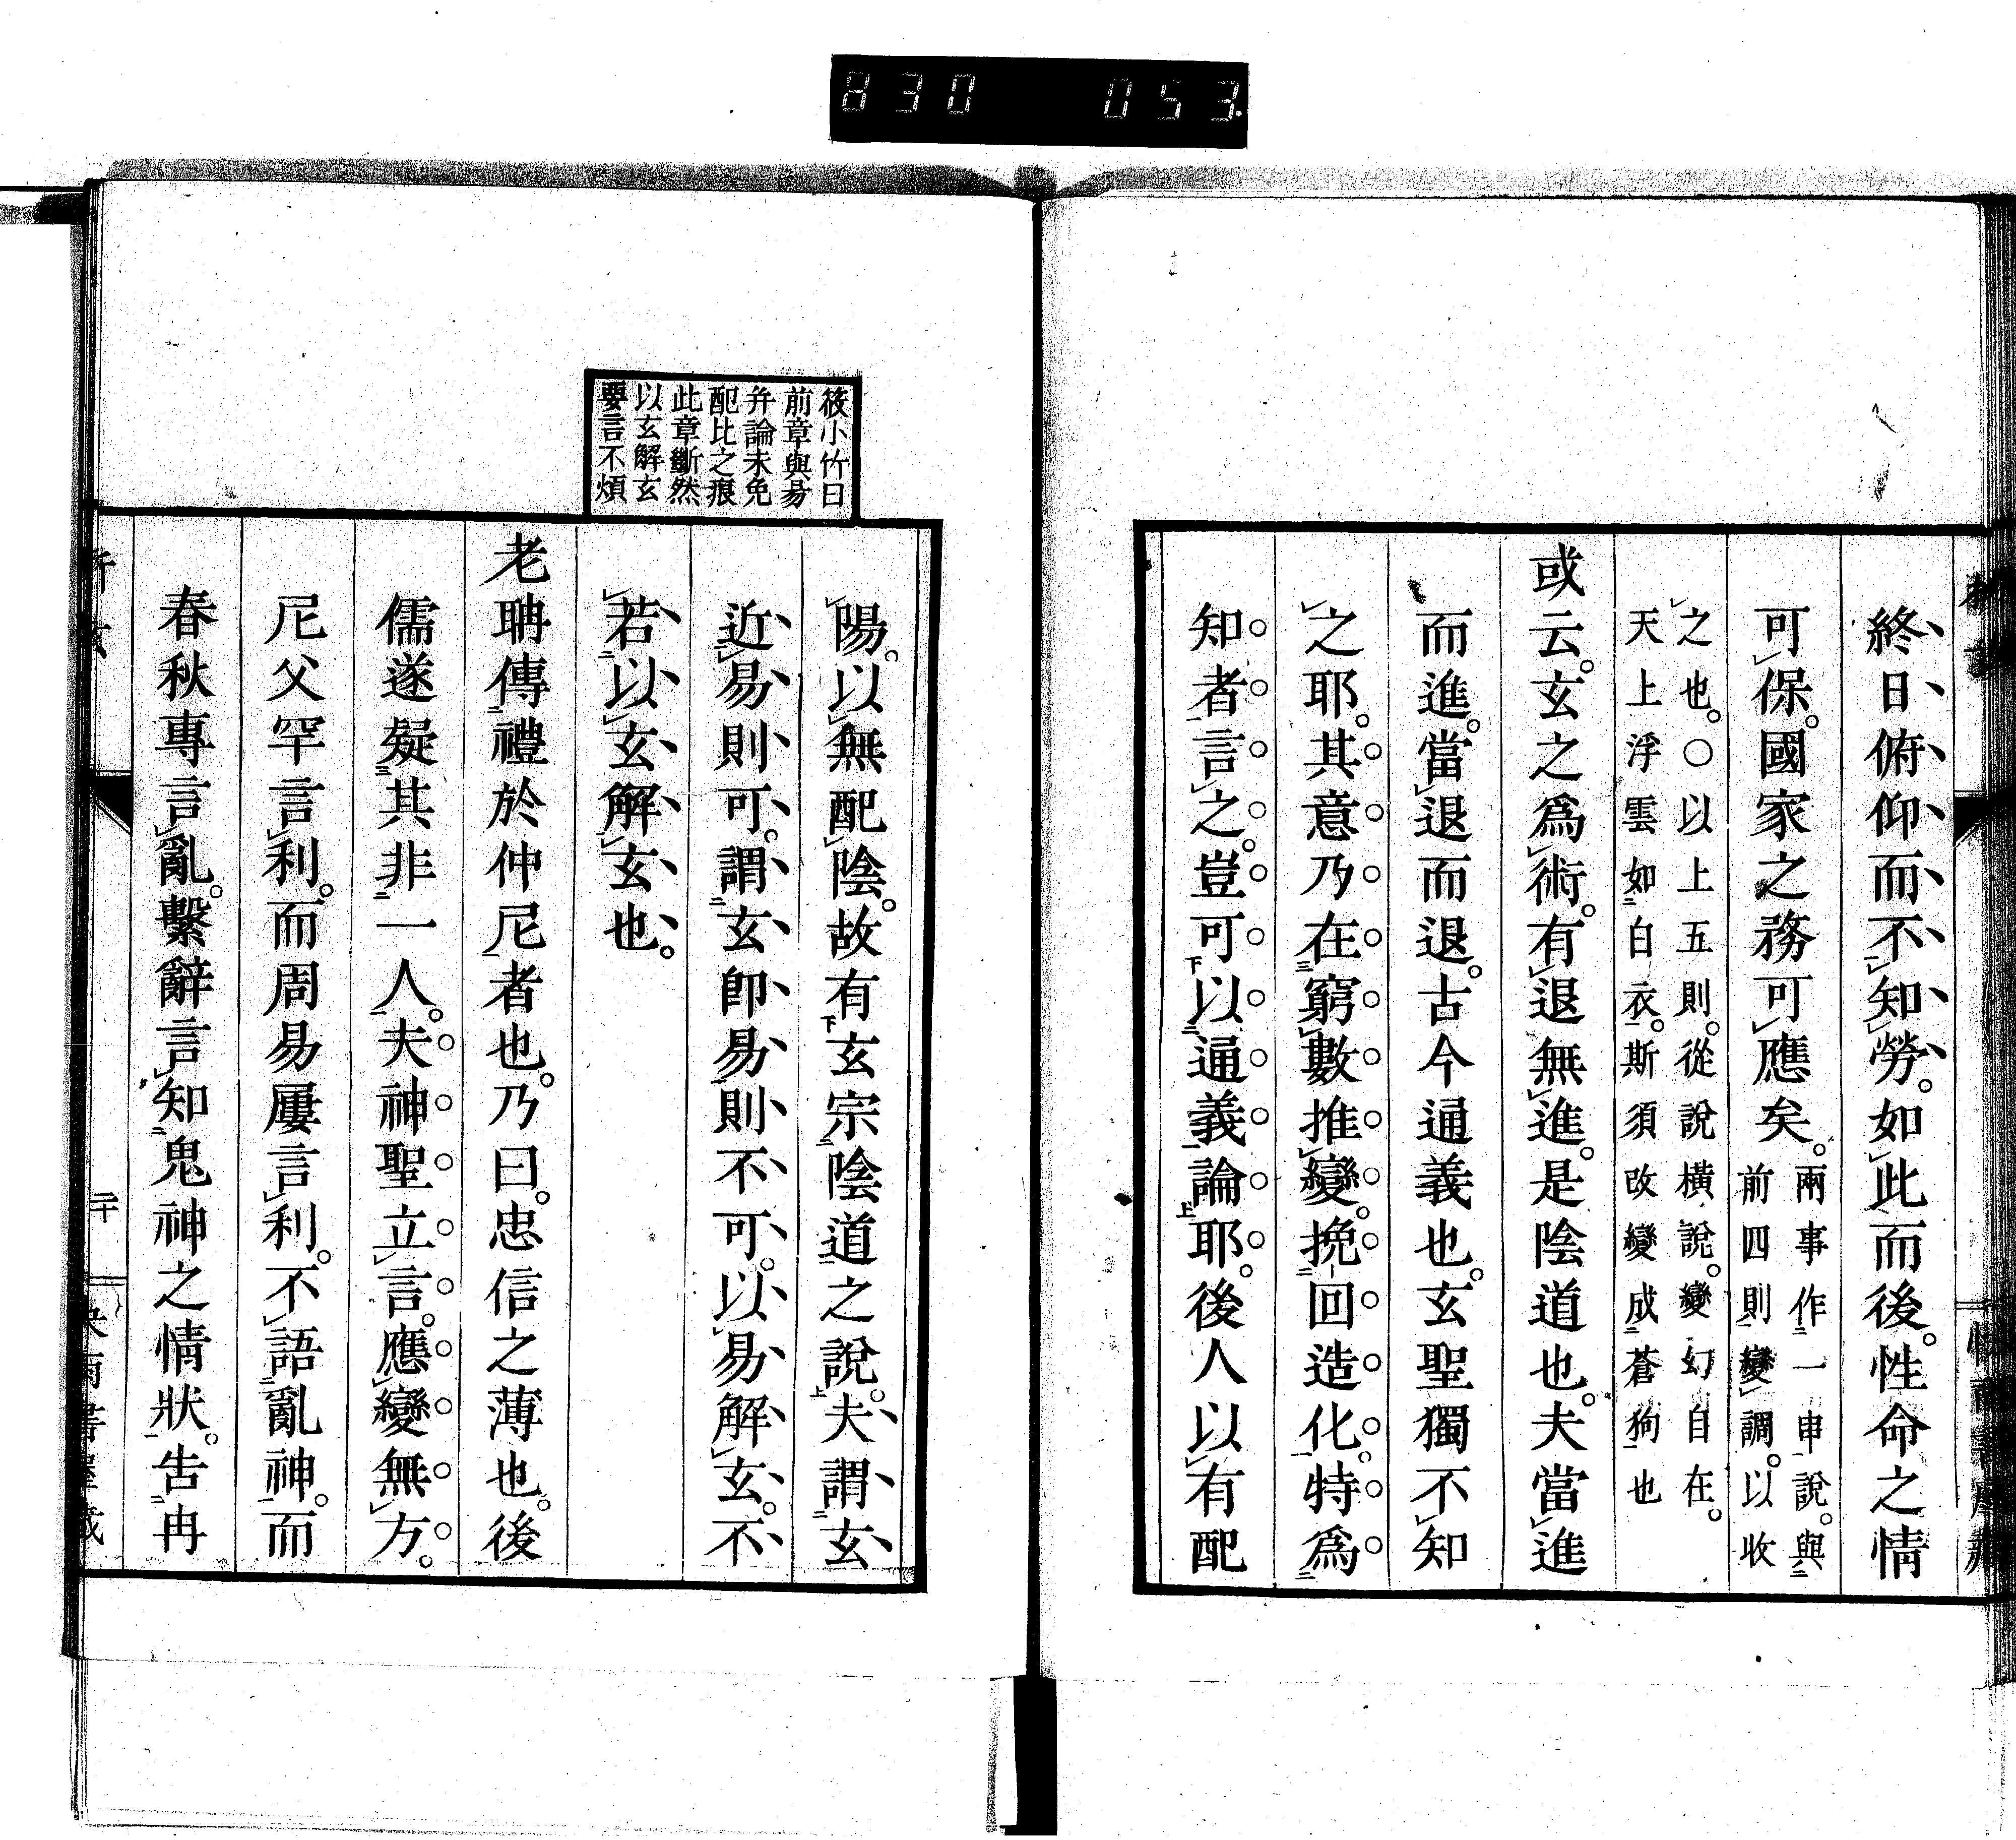 830 053
終日俯仰而不知勞。如此而後。性命之情
可保。國家之務可應矣。兩事作一申說。與
前四則變調。以收
之也。○以上五則。從說橫說。變幻自在。
天上浮雲如白衣。斯須改變成蒼狗也
或云。玄之爲術。有退無進。是陰道也。夫當進
而進。當退而退。古今通義也。玄聖獨不知
之耶。其意乃在窮數推變。挽回造化。特爲
知者言之。豈可以通義論耶。後人以有配
筱小竹曰
前章與易
幷論未免
配比之痕
此章斷然
以玄解玄
要言不煩
陽。以無配陰。故有玄宗陰道之說。夫謂玄
近易則可。謂玄卽易則不可。以易解玄。不
若以玄解玄也。
老聃傳禮於仲尼者也。乃曰。忠信之薄也。後
儒遂疑其非一人。夫神聖立言。應變無方。
尼父罕言利。而周易屢言利。不語亂神。而
春秋專言亂。繫辭言知鬼神之情狀。告冉
二十